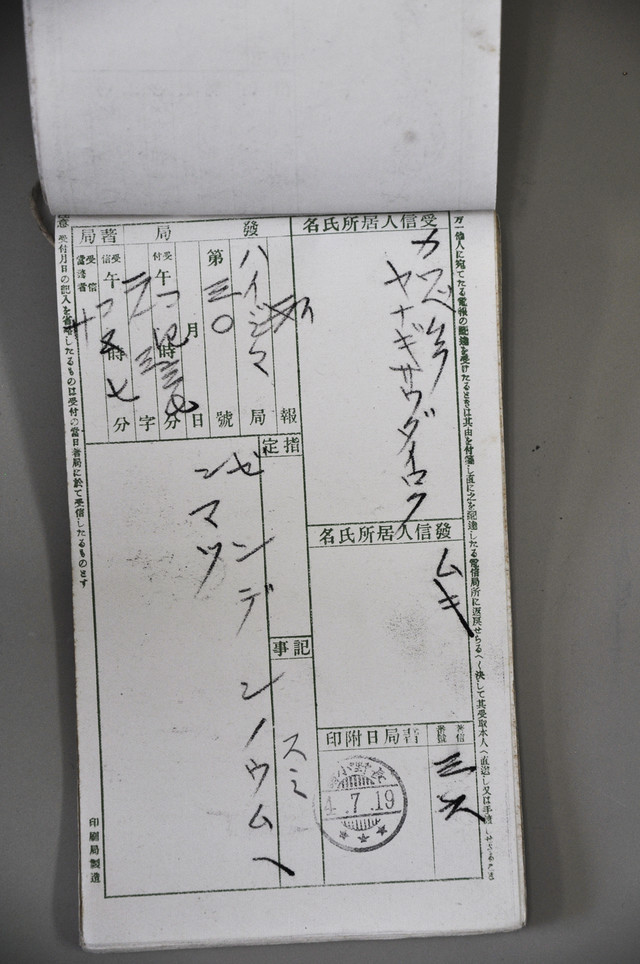 万一他人に宛てたる電報の配達を受けたるときは其由を付箋し直に之を配達したる電信局所に返戻せらるへく決して其受取本人へ直送し又は手渡
受信人居所氏名
カワベムラ
ヤナギサワダイロク
發信人居所氏名
ムキ
着信番號
三六
着局日附印
4.7.19
發局
着局
報
ハイジマ局
第三〇號
月日
受付 午 時 分
字
受信 午 時 七分
指定
記事
スミ
ゼンデンノウムヘ
ンマツ
受付月日の記入を省略したるものは受付の當日着局に於て受信したるものとす
印刷局製造